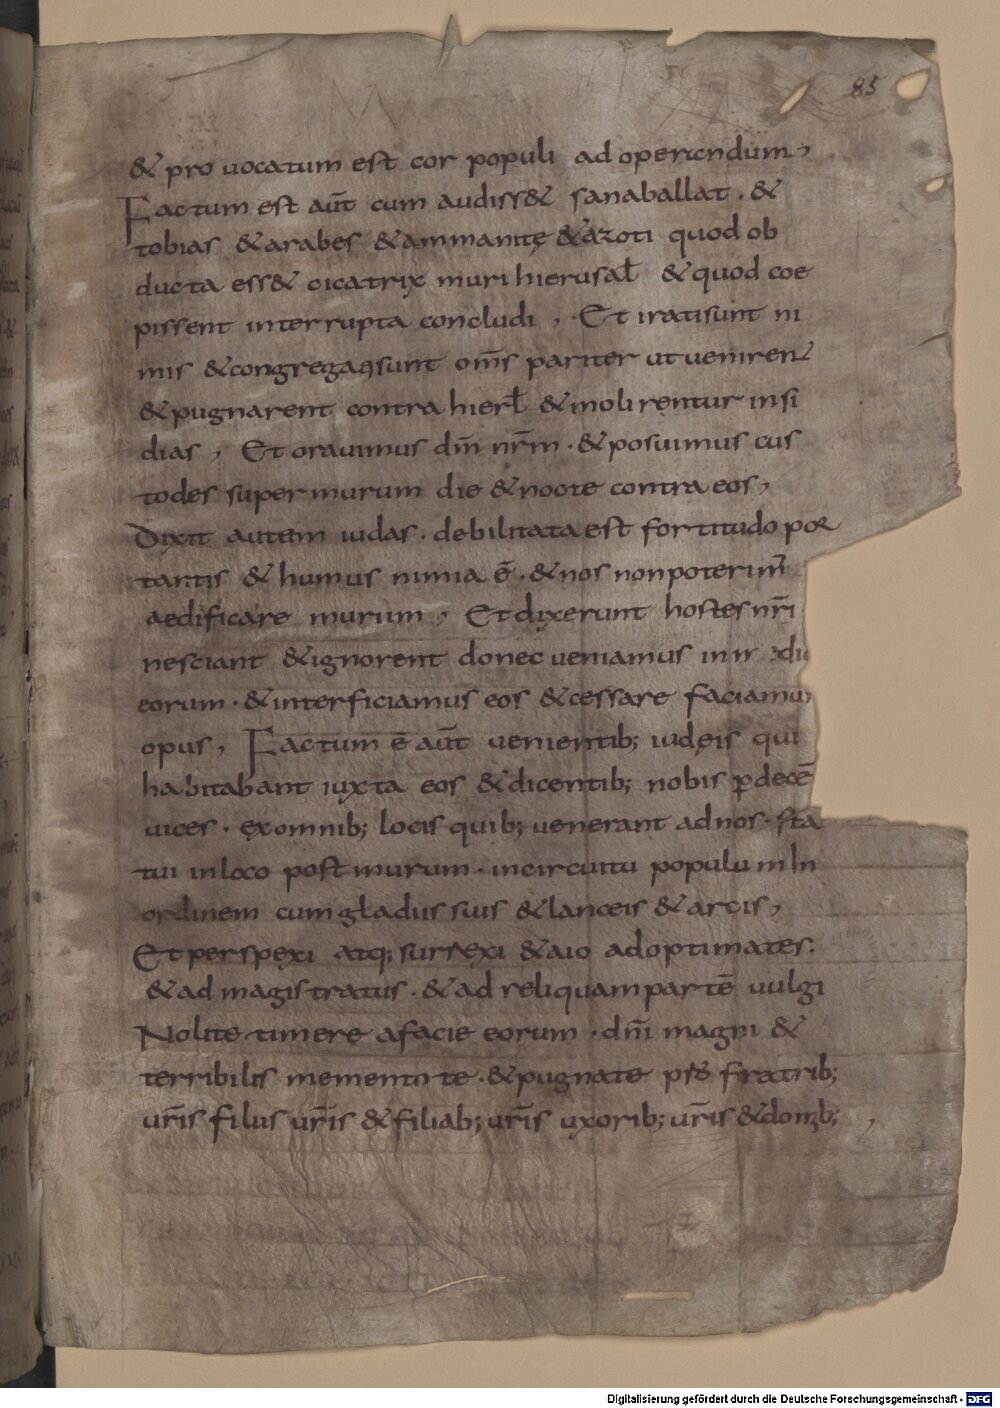 85
& pro uocatum est cor populi ad operandum,
Factum est aut̄ cum audiss& sanaballat . &
tobias & arabes & ammanitę & azoti quod ob
ducta ess& cicatrix muri hierusal̄ & quod coe
pissent interrupta concludi , Et iratisunt ni
mis & congregatisunt om̄s pariter ut uenirent
& pugnarent contra hierl̄ & molirentur insi
dias , Et orauimus dm̄ nr̄m . & posuimus cus
todes super murum die & nocte contra eos,
Dixit autem iudas . debilitata est fortitudo por
tantis & humus nimia ē . & nos non poterim̄
aedificare murum , Et dixerunt hostes nr̄i
nesciant & ignorent donec ueniamus in
eorum . & interficiamus eos & cessare faciamus
opus , Factum ē aut̄ uenientib; iudęis qui
habitabant iuxta eos & dicentib; nobis ꝑ decē
uices . ex omnib; locis quib; uenerant ad nos . sta
tui in loco post murum . in circuitu populum In
ordinem cum gladiis suis & lanceis & arcis,
Et perspexi atq; surrexi & aio ad optimates.
& ad magistratus . & ad reliquam partē uulgi
Nolite timere a facie eorum . dn̄i magni &
terribilis mementote . & pugnate fratrib;
ur̄is filiis ur̄is & filiab; ur̄is uxorib; ur̄is & domib; ,
Digitalisierung gefördert durch die Deutsche Forschungsgemeinschaft - DFG